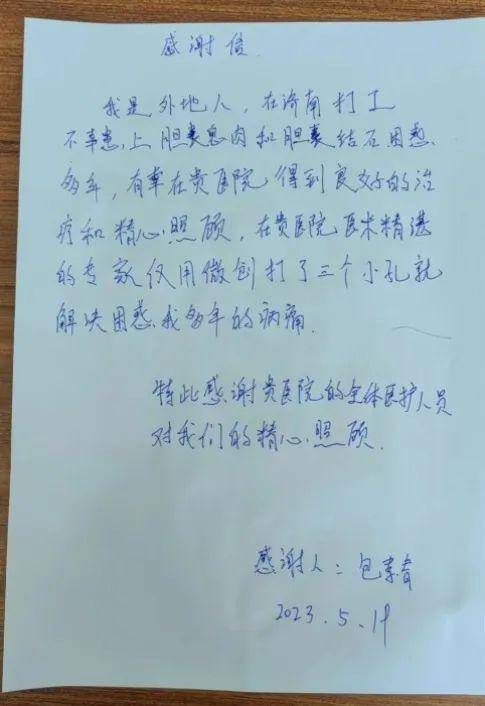 感谢信
我是外地人，在济南打工
不幸患上胆囊息肉和胆囊结石困惑
多年，有幸在贵医院得到良好的治
疗和精心照顾，在贵医院医术精湛
的专家仅用微创打了三个小孔就
解决困惑我多年的病痛.
特此感谢贵医院的全体医护人员
对我们的精心照顾.
感谢人：包春
2023.5.19